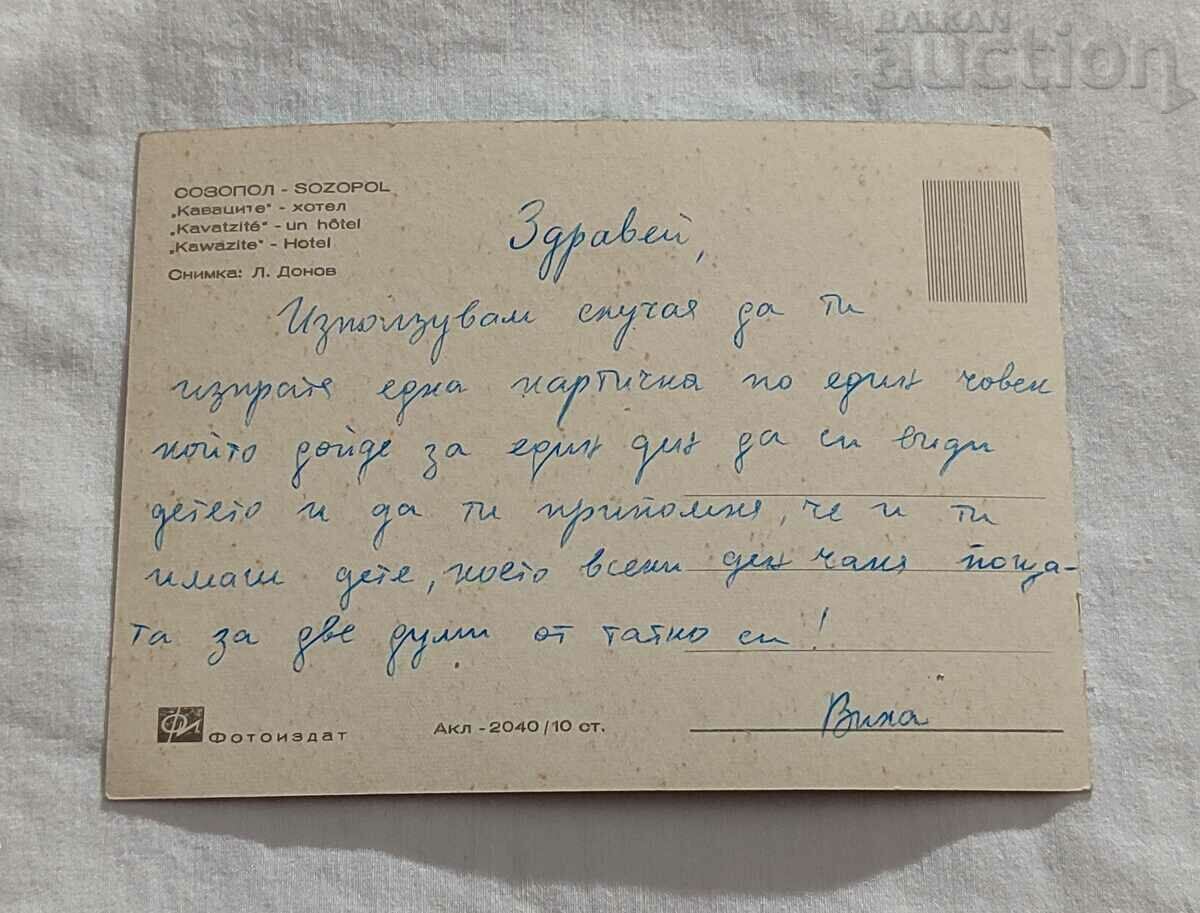 BALKAN
auction
СОЗОПОЛ - SOZOPOL
„Каваците" - хотел
„Kavatzité" - un hôtel
„Kawazite" - Hotel
Снимка: Л. Донов
Здравей,
Използувам случая да ти
изпратя една картичка по един човек
който дойде за един ден да си види
детето и да ти припомня, че и ти
имаш дете, което всеки ден чака поща-
та за две думи от татко си!
Фотоиздат
Акл - 2040/10 ст.